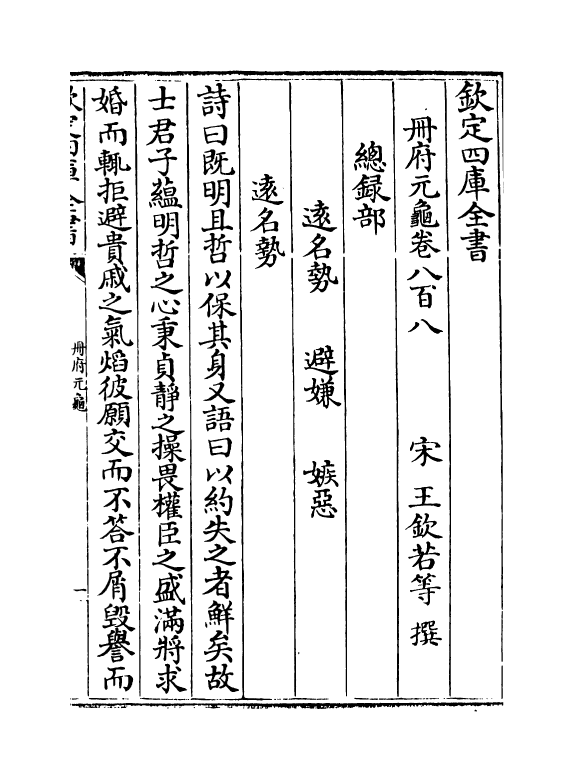 欽定四庫全書
冊府元龜卷八百八　宋　王欽若等　撰
總録部
逺名勢　避嫌　嫉惡
逺名勢
詩曰既明且哲以保其身又語曰以約失之者鮮矣故
士君子蘊明哲之心秉貞靜之操畏權臣之盛滿將求
婚而輒拒避貴戚之氣熖彼願交而不答不屑毁譽而
欽定四庫全書
冊府元龜
一